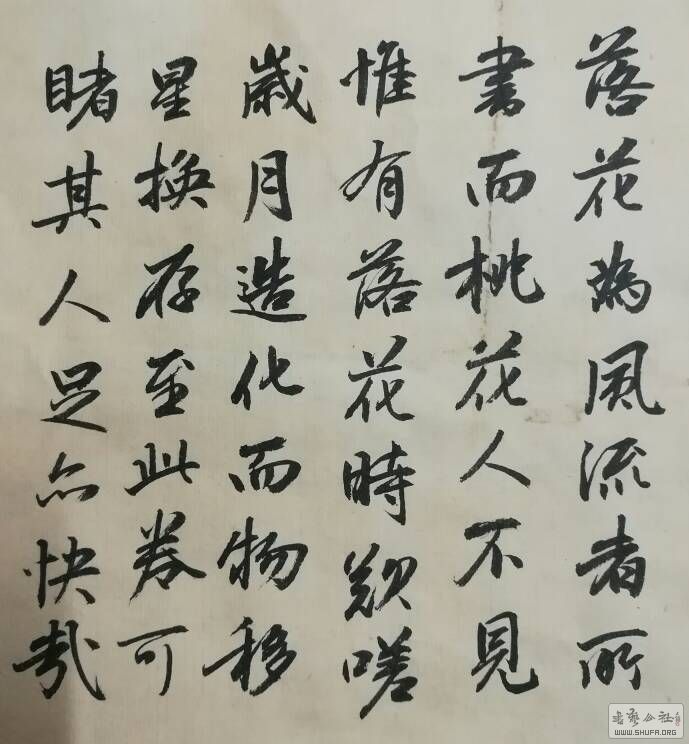 落花為風流者所
書而桃花人不見
惟有落花時歎嗟
歲月造化而物移
星換存至此券可
睹其人足亦快哉
书艺公社
WWW.SHUFA.ORG